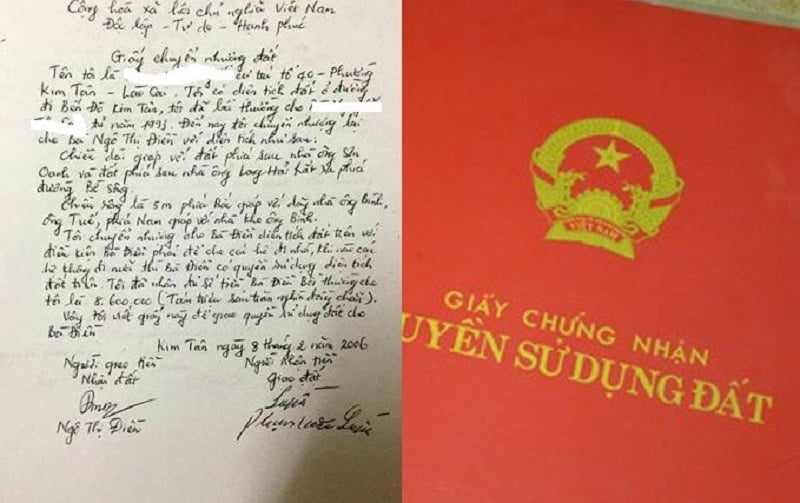 Cộng hoà xã hội chủ nghĩa Việt Nam
Độc lập - Tự do - Hạnh phúc
Giấy chuyển nhượng đất
Tên tôi là cư trú tổ 40 - Phường
Kim Tân - Lào Cai. Tôi có diện tích đất ở đường
đi Bến Đò Kim Tân, tôi đã bồi thường cho
từ năm 1993. Đến nay tôi chuyển nhượng lại
cho Bà Ngô Thị Điền với diện tích như sau:
Chiều dài giáp với đất phía sau nhà ông Sơn
Oanh và đất phía sau nhà ông Long Hải hất ra phía
đường Bờ Sông.
Chiều rộng là 5m phía Bắc giáp với dãy nhà ông Bính,
ông Tuế, phía Nam giáp với nhà kho ông Bính.
Tôi chuyển nhượng cho Bà Điền diện tích đất trên với
điều kiện Bà Điền phải để cho các hộ đi nhờ, khi nào các
hộ không đi nữa thì Bà Điền có quyền sử dụng diện tích
đất trên. Tôi đã nhận đủ số tiền Bà Điền Bồi thường cho
tôi là 8.600,000 (Tám triệu sáu trăm nghìn đồng chẵn).
Vậy tôi viết giấy này để giao quyền sử dụng đất cho
Bà Điền
Kim Tân ngày 8 tháng 2 năm 2006
Người giao tiền Người nhận tiền
Nhận đất Giao đất
Ngô Thị Điền
VIỆT NAM
GIẤY CHỨNG NHẬN
UYỀN SỬ DỤNG ĐẤT